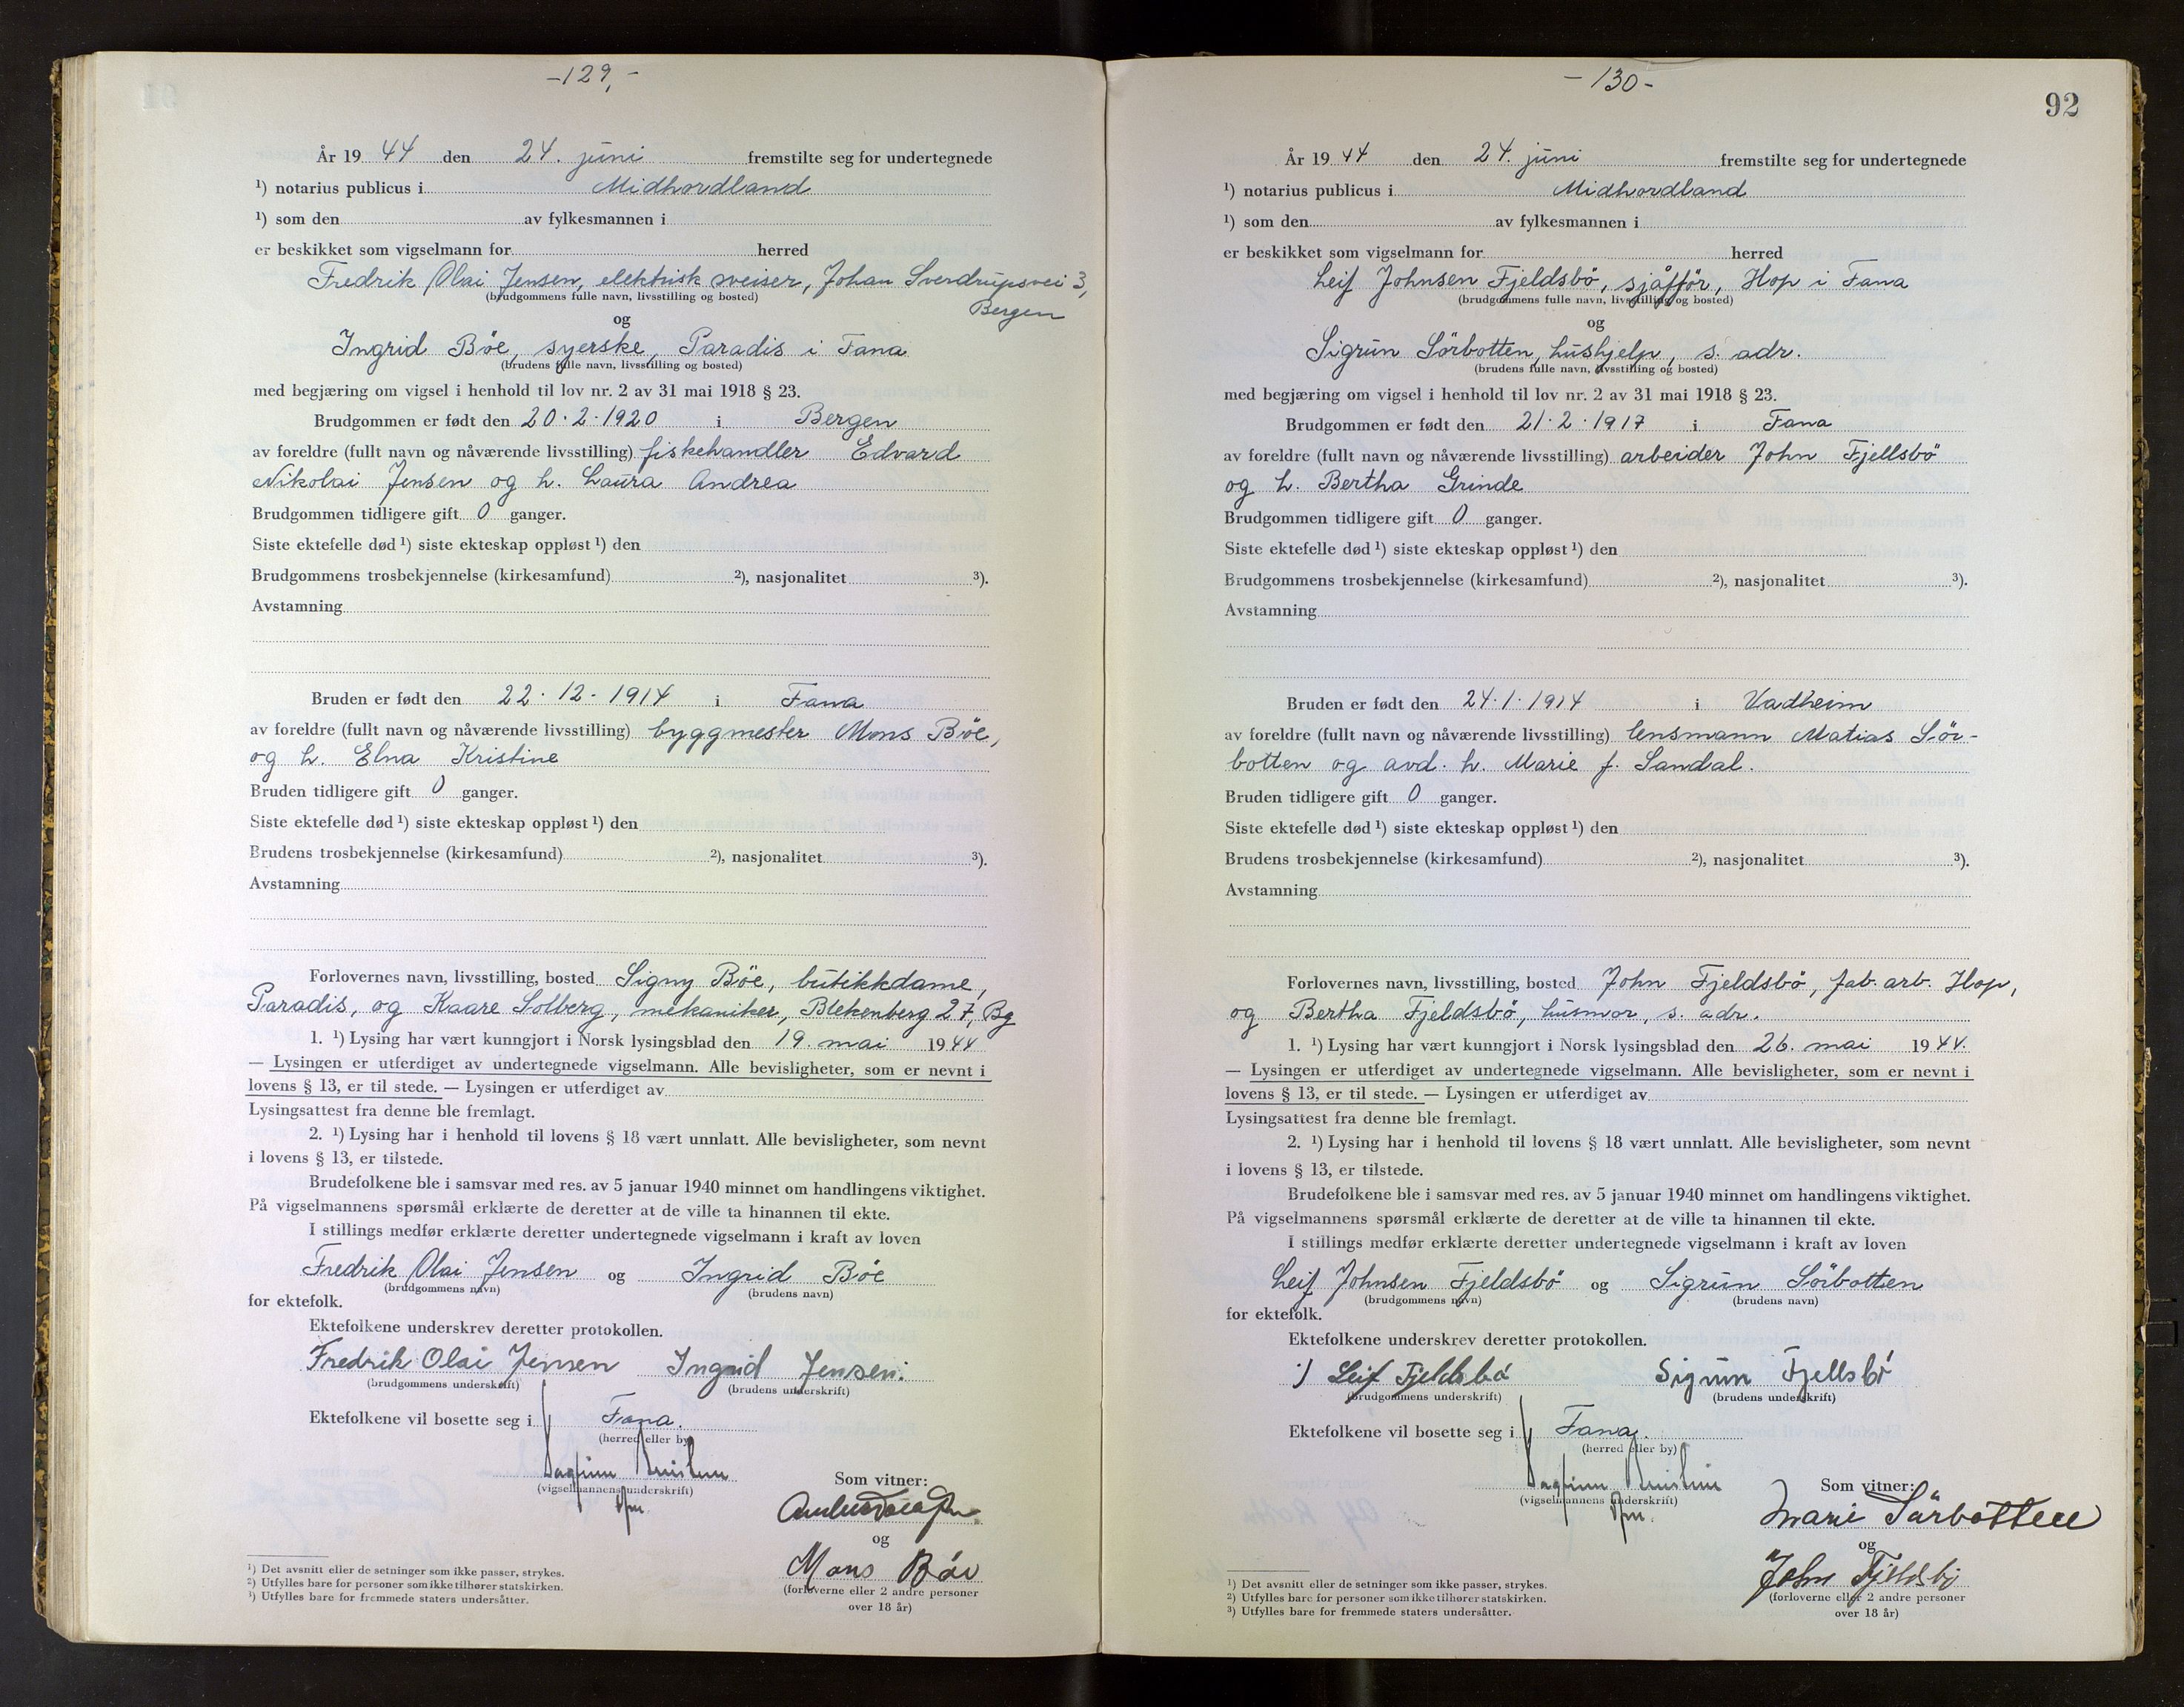 -129,-
År 1944 den 24. juni fremstilte seg for undertegnede
¹) notarius publicus i Midhordland
¹) som den av fylkesmannen i
er beskikket som vigselmann for herred
Fredrik Olai Jensen, elektrisk sveiser, Johan Sverdrupsvei 3,
(brudgommens fulle navn, livsstilling og bosted)
Bergen
og
Ingrid Böe, syerske, Paradis i Fana
(brudens fulle navn, livsstilling og bosted)
med begjæring om vigsel i henhold til lov nr. 2 av 31 mai 1918 § 23.
Brudgommen er født den 20.2.1920 i Bergen
av foreldre (fullt navn og nåværende livsstilling) fiskehandler Edvard
Nikolai Jensen og h. Laura Andrea
Brudgommen tidligere gift 0 ganger.
Siste ektefelle død ¹) siste ekteskap oppløst ¹) den
Brudgommens trosbekjennelse (kirkesamfund) ²), nasjonalitet ³).
Avstamning
Bruden er født den 22.12.1914 i Fana
av foreldre (fullt navn og nåværende livsstilling) byggmester Mons Böe,
og h. Elna Kristine
Bruden tidligere gift 0 ganger.
Siste ektefelle død ¹) siste ekteskap oppløst ¹) den
Brudens trosbekjennelse (kirkesamfund) ²), nasjonalitet ³).
Avstamning
Forlovernes navn, livsstilling, bosted Signy Böe, butikkdame,
Paradis, og Kaare Solberg, mekaniker, Blekenberg 27, Bg
1. ¹) Lysing har vært kunngjort i Norsk lysingsblad den 19. mai 1944
— Lysingen er utferdiget av undertegnede vigselmann. Alle bevisligheter, som er nevnt i
lovens § 13, er til stede. — Lysingen er utferdiget av
Lysingsattest fra denne ble fremlagt.
2. ¹) Lysing har i henhold til lovens § 18 vært unnlatt. Alle bevisligheter, som nevnt
i lovens § 13, er tilstede.
Brudefolkene ble i samsvar med res. av 5 januar 1940 minnet om handlingens viktighet.
På vigselmannens spørsmål erklærte de deretter at de ville ta hinannen til ekte.
I stillings medfør erklærte deretter undertegnede vigselmann i kraft av loven
Fredrik Olai Jensen og Ingrid Böe
(brudgommens navn) (brudens navn)
for ektefolk.
Ektefolkene underskrev deretter protokollen.
Fredrik Olai Jensen Ingrid Jensen.
(brudgommens underskrift) (brudens underskrift)
Ektefolkene vil bosette seg i Fana.
(herred eller by)
(vigselmannens underskrift)
Som vitner:
og
Mons Böe
(forloverne eller 2 andre personer
over 18 år)
¹) Det avsnitt eller de setninger som ikke passer, strykes.
²) Utfylles bare for personer som ikke tilhører statskirken.
³) Utfylles bare for fremmede staters undersåtter.
-130-
92
År 1944 den 24. juni fremstilte seg for undertegnede
¹) notarius publicus i Midhordland
¹) som den av fylkesmannen i
er beskikket som vigselmann for herred
Leif Johnsen Fjeldsbö, sjåfför, Hop i Fana
(brudgommens fulle navn, livsstilling og bosted)
og
Sigrun Sörbotten, hushjelp, s. adr.
(brudens fulle navn, livsstilling og bosted)
med begjæring om vigsel i henhold til lov nr. 2 av 31 mai 1918 § 23.
Brudgommen er født den 21.2.1917 i Fana
av foreldre (fullt navn og nåværende livsstilling) arbeider John Fjellsbö
og h. Bertha Grinde
Brudgommen tidligere gift 0 ganger.
Siste ektefelle død ¹) siste ekteskap oppløst ¹) den
Brudgommens trosbekjennelse (kirkesamfund) ²), nasjonalitet ³).
Avstamning
Bruden er født den 24.1.1914 i Vadheim
av foreldre (fullt navn og nåværende livsstilling) lensmann Matias Sör-
botten og avd. h. Marie f. Sandal.
Bruden tidligere gift 0 ganger.
Siste ektefelle død ¹) siste ekteskap oppløst ¹) den
Brudens trosbekjennelse (kirkesamfund) ²), nasjonalitet ³).
Avstamning
Forlovernes navn, livsstilling, bosted John Fjeldsbö, fab. arb. Hop,
og Bertha Fjeldsbö, husmor, s. adr.
1. ¹) Lysing har vært kunngjort i Norsk lysingsblad den 26. mai 1944.
— Lysingen er utferdiget av undertegnede vigselmann. Alle bevisligheter, som er nevnt i
lovens § 13, er til stede. — Lysingen er utferdiget av
Lysingsattest fra denne ble fremlagt.
2. ¹) Lysing har i henhold til lovens § 18 vært unnlatt. Alle bevisligheter, som nevnt
i lovens § 13, er tilstede.
Brudefolkene ble i samsvar med res. av 5 januar 1940 minnet om handlingens viktighet.
På vigselmannens spørsmål erklærte de deretter at de ville ta hinannen til ekte.
I stillings medfør erklærte deretter undertegnede vigselmann i kraft av loven
Leif Johnsen Fjeldsbö og Sigrun Sörbotten
(brudgommens navn) (brudens navn)
for ektefolk.
Ektefolkene underskrev deretter protokollen.
Leif Fjeldsbö Sigrun Fjellsbö
(brudgommens underskrift) (brudens underskrift)
Ektefolkene vil bosette seg i Fana.
(herred eller by)
(vigselmannens underskrift)
Som vitner:
Marie Sörbotten
og
John Fjeldsbö
(forloverne eller 2 andre personer
over 18 år)
¹) Det avsnitt eller de setninger som ikke passer, strykes.
²) Utfylles bare for personer som ikke tilhører statskirken.
³) Utfylles bare for fremmede staters undersåtter.